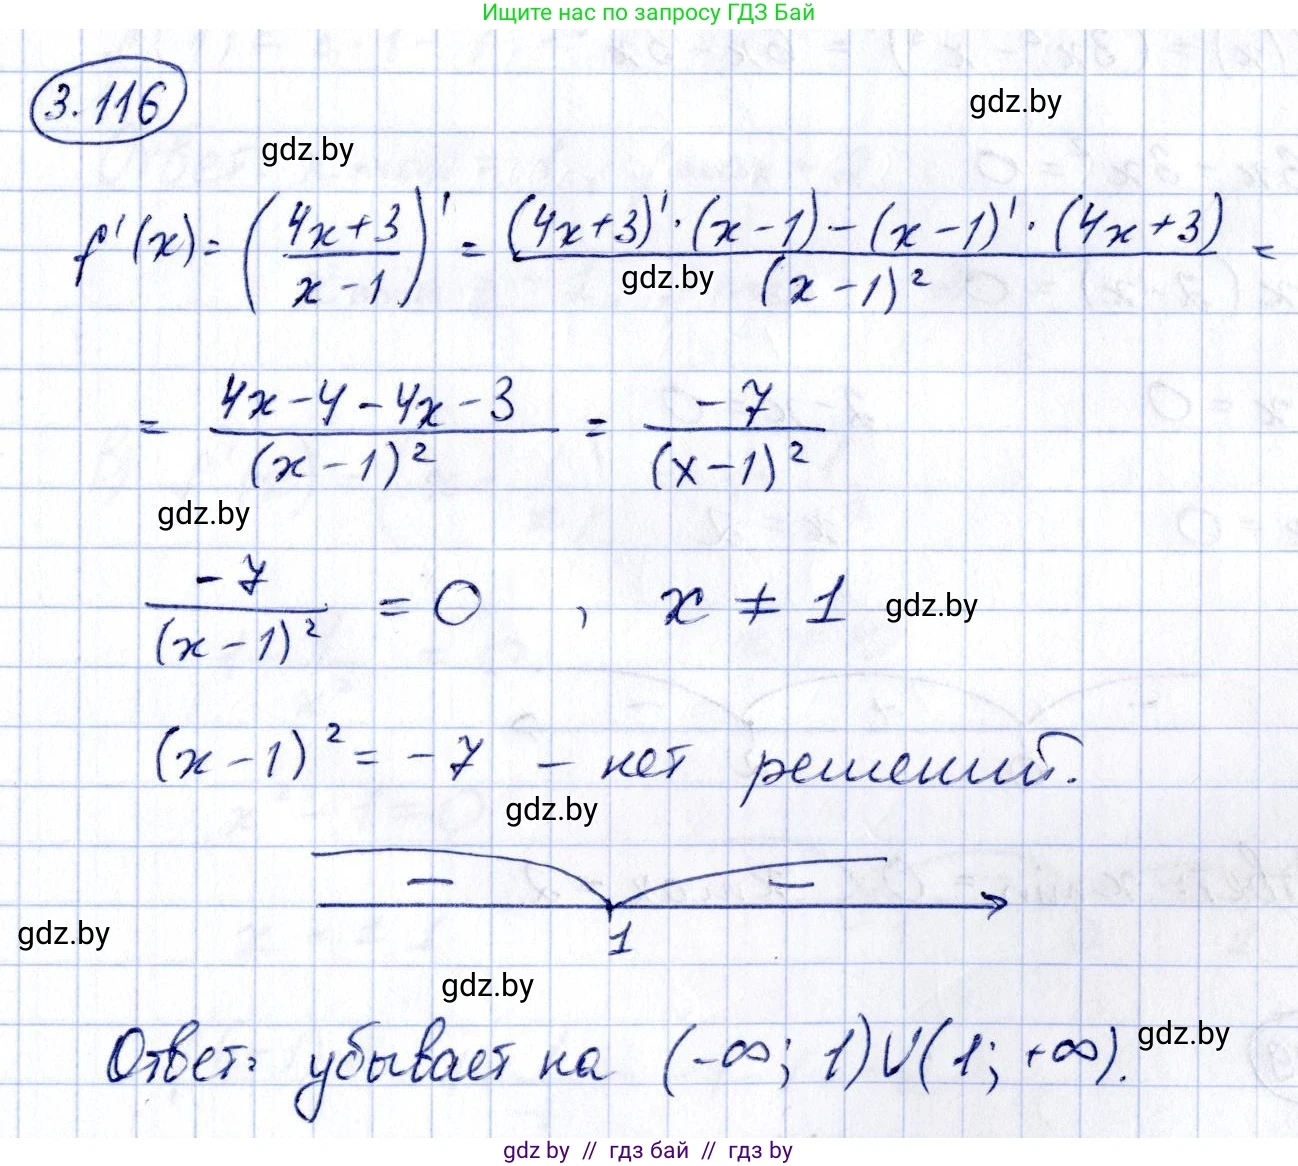 Ищите нас по запросу ГДЗ Бай
3.116
gdz.by
gdz.by
f'(x) = ((4x+3)/(x-1))' = ((4x+3)'·(x-1)-(x-1)'·(4x+3))/(x-1)² =
gdz.by
= (4x-4-4x-3)/(x-1)² = -7/(x-1)²
gdz.by
-7/(x-1)² = 0 , x ≠ 1
gdz.by
(x-1)² = -7 - нет решений.
gdz.by
- -
1
gdz.by
gdz.by
Ответ: убывает на (-∞; 1)∪(1; +∞).
gdz.by
gdz by // гдз бай // гдз by